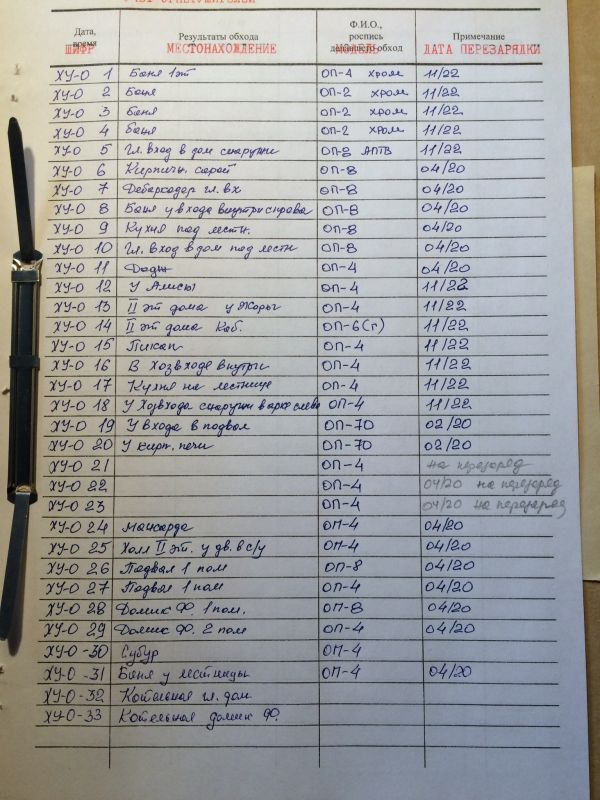 УЧЕТ ОГНЕТУШИТЕЛЕЙ
Дата, время Результаты обхода Ф.И.О., роспись делавшего обход Примечание
ШИФР МЕСТОНАХОЖДЕНИЕ МОДЕЛЬ ДАТА ПЕРЕЗАРЯДКИ
ХУ-О 1 Баня 1 эт ОП-4 хром 11/22
ХУ-О 2 Баня ОП-2 хром 11/22
ХУ-О 3 Баня ОП-2 хром 11/22
ХУ-О 4 баня ОП-2 хром 11/22
ХУ-О 5 гл. вход в дом снаружи ОП-8 АПТВ 11/22
ХУ-О 6 Кирпичн. сарай ОП-8 04/20
ХУ-О 7 Дебаркадер гл. вх ОП-8 04/20
ХУ-О 8 Баня у входа внутри справа ОП-8 04/20
ХУ-О 9 Кухня под лестн. ОП-8 04/20
ХУ-О 10 Гл. вход в дом под лестн ОП-8 04/20
ХУ-О 11 ОП-4 04/20
ХУ-О 12 У Алисы ОП-4 11/22
ХУ-О 13 II эт дома у Жоры ОП-4 11/22
ХУ-О 14 II эт дома Каб. ОП-6(г) 11/22
ХУ-О 15 Пикап ОП-4 11/22
ХУ-О 16 В Хозвходе внутри ОП-4 11/22
ХУ-О 17 Кухня на лестнице ОП-4 11/22
ХУ-О 18 У Хозвхода снаружи в арке слева ОП-4 11/22
ХУ-О 19 У входа в подвал ОП-70 02/20
ХУ-О 20 У кирп. печи ОП-70 02/20
ХУ-О 21 ОП-4 на перезаряд
ХУ-О 22 ОП-4 04/20 на перезаряд
ХУ-О 23 ОП-4 04/20 на перезаряд
ХУ-О 24 Мансарда ОП-4 04/20
ХУ-О 25 Холл II эт. у дв. в с/у ОП-4 04/20
ХУ-О 26 Подвал 1 пом ОП-8 04/20
ХУ-О 27 Подвал 1 пом ОП-4 04/20
ХУ-О 28 Домик Ф. 1 пом. ОП-8 04/20
ХУ-О 29 Домик Ф. 2 пом ОП-4 04/20
ХУ-О-30 Субур ОП-4
ХУ-О-31 Баня у лестницы ОП-4 04/20
ХУ-О-32 Котельная гл. дом
ХУ-О-33 Котельная домик Ф.